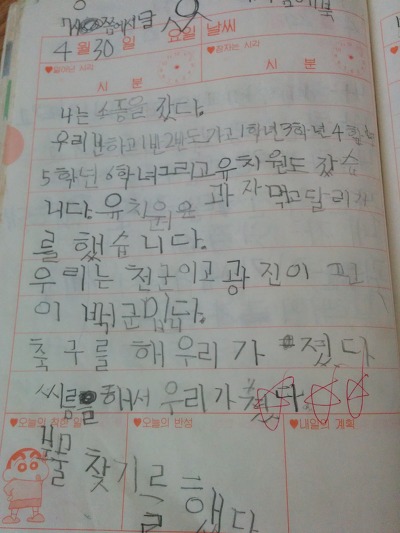 4월 30일 요일 날씨
♥일어난 시각 ♥잠자는 시각
시 분 시 분
나는 소풍을 갔다.
우리반하고 1반2반도가고 1학년3학년4학년
5학년6학년그리고유치원도 갔습
니다. 유치원은 과자먹고달리기
를 했습니다.
우리는 천군이고광진이
이 백군입니다.
축구를 해 우리가 졌다
씨름을 해서 우리가 졌다.
♥오늘의 착한 일 ♥오늘의 반성 ♥내일의 계획
보물찾기를 했다